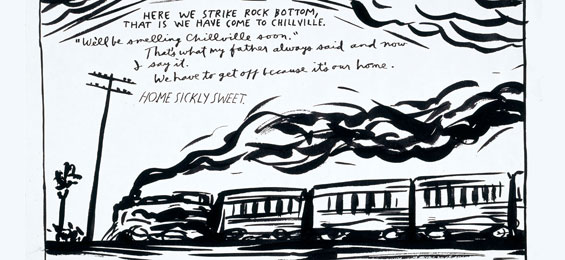 HERE WE STRIKE ROCK BOTTOM,
THAT IS WE HAVE COME TO CHILLVILLE.
"We'll be smelling Chillville soon."
That's what my father always said and now
I say it.
We have to get off because it's our home.
HOME SICKLY SWEET.